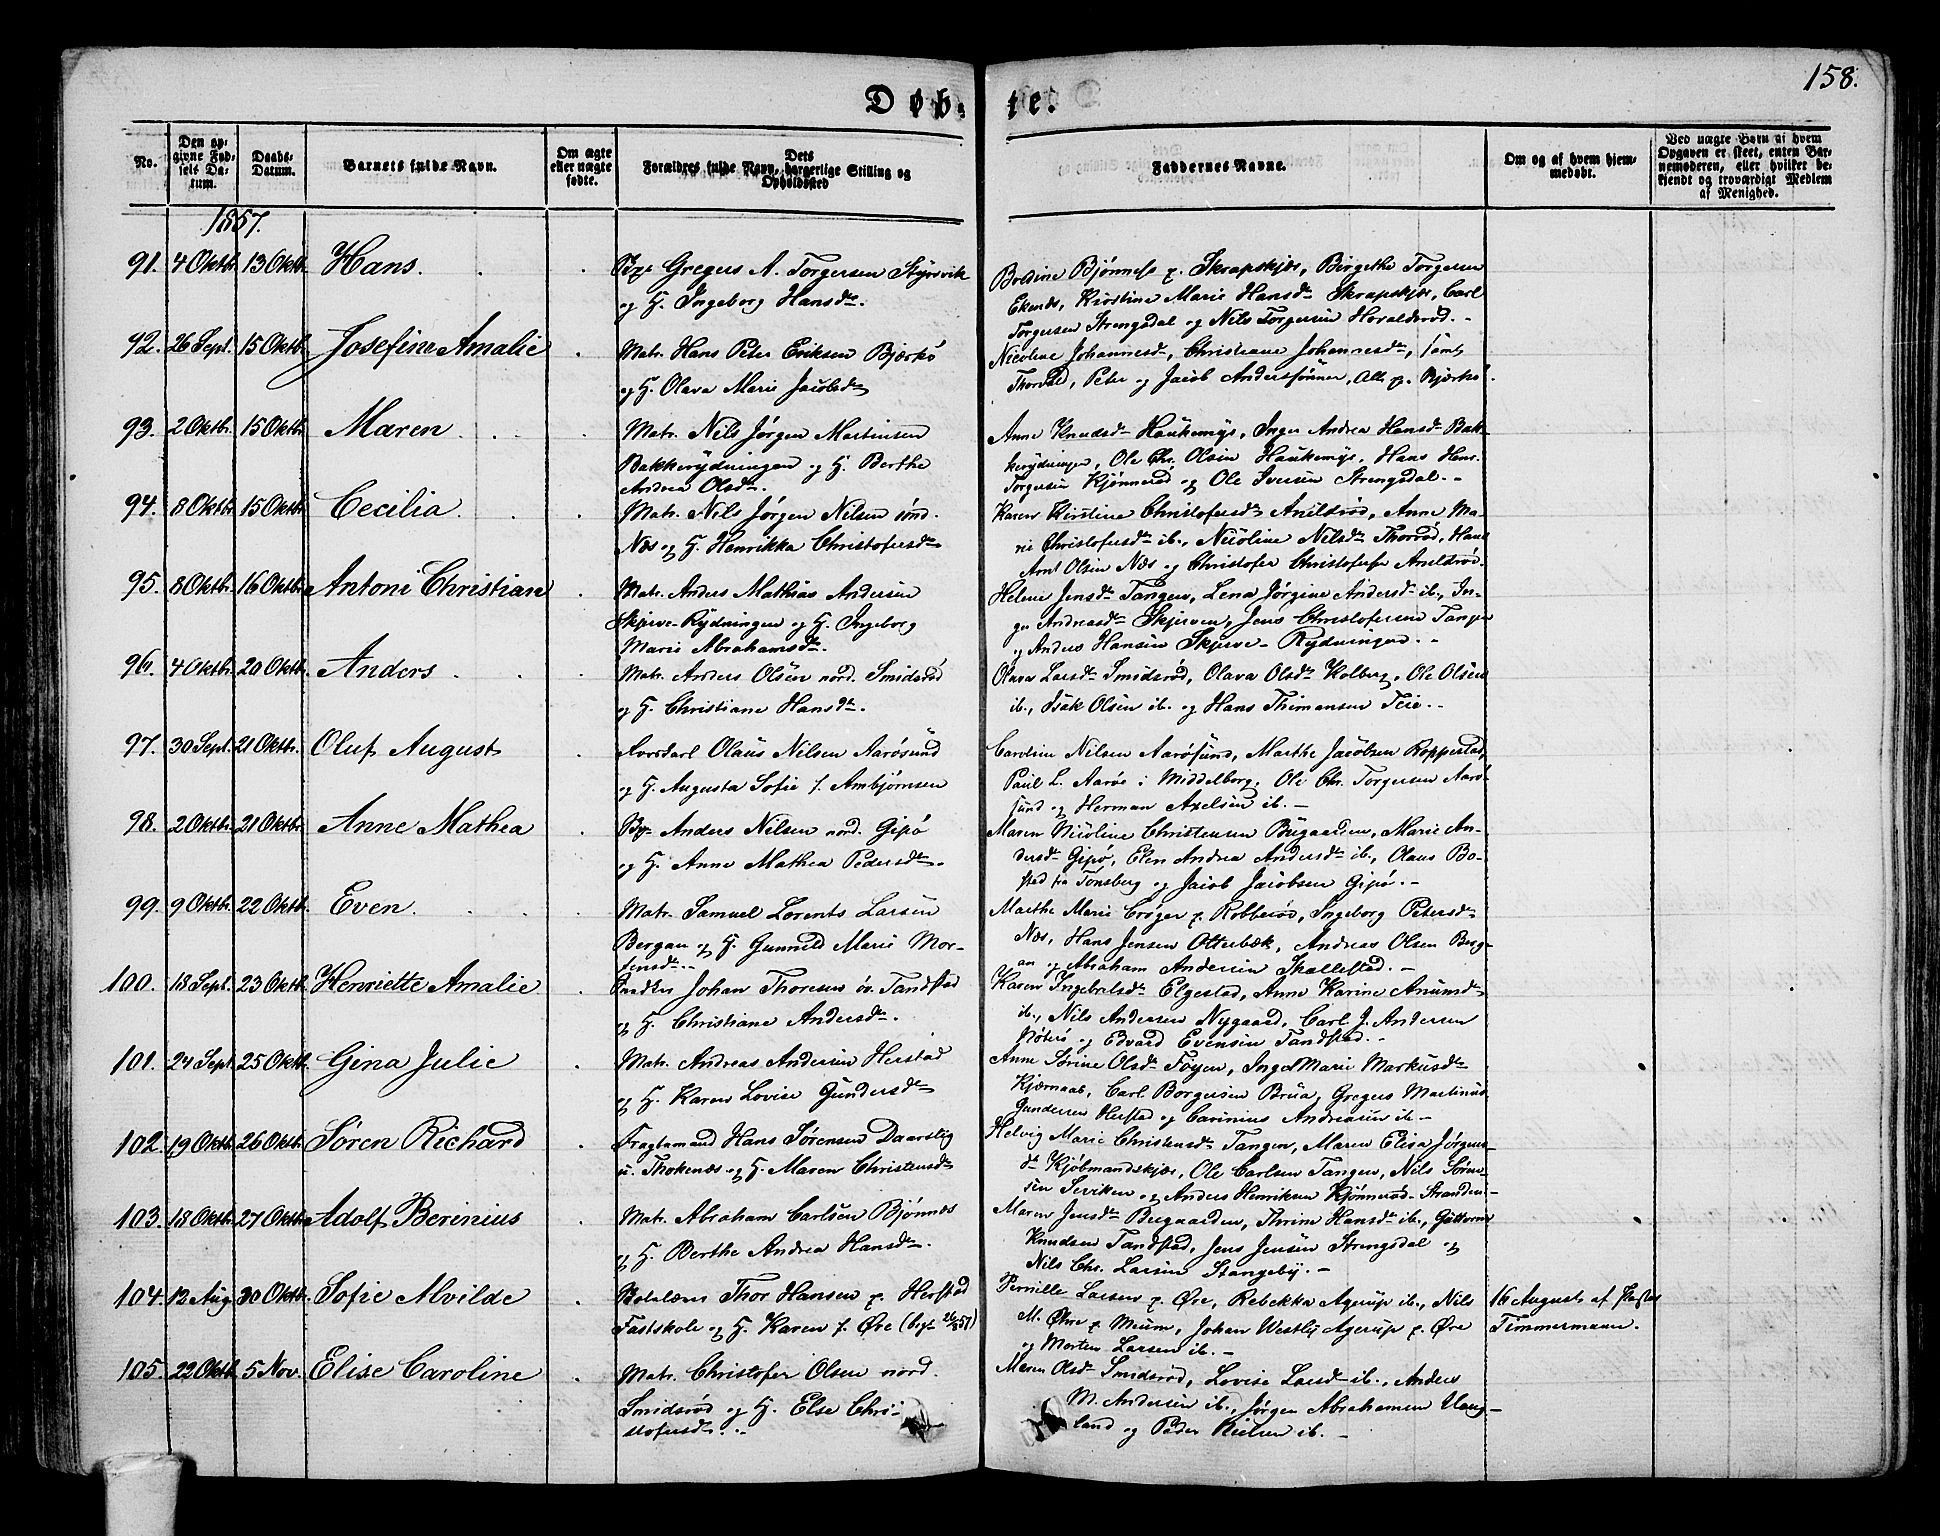 158.
Døb-te.
No.
Den opgivne Fødsels Datum.
Daabs-Datum.
Barnets fulde Navn.
Om ægte eller uægte fødte.
Dets Forældres fulde Navn, borgerlige Stilling og Opholdssted
Faddernes Navne.
Om og af hvem hjemmedøbt.
Ved uægte Barn af hvem Opgaven er skeet, enten Barnemoderen, eller hvilket bekjendt og troværdigt Medlem af Menighed.
1857.
91. 4 Oktbr. 13 Oktb. Hans.
Gregers A. Torgersen Styrsvik
og H. Ingeborg Hansdtr.
Bredine Bjønness p. Skrapskjær, Birgethe Torgersen
Ekenes, Kirstine Marie Hansdtr Skrapskjær, Carl
Torgersen Strengsdal og Nils Torgersen Haraldsrød.-
92. 26 Sept. 15 Oktb. Josefine Amalie
Matr. Hans Peter Eriksen Bjærkø
og H. Olava Marie Jacobsdtr
Nicoline Johannesdtr, Christiane Johannesdtr, samt
Thorvald, Peter og Jacob Anderssønner, Alle p. Bjærkø.
93. 2 Oktbr. 15 Oktb. Maren
Matr. Nils Jørgen Martinsen
Bakkerydningen og H. Berthe
Andrea Olsdtr.
Anne Knudsdtr Haukemyr, Inger Andrea Hansdtr Bak-
kerydningen, Ole Chr. Olsen Haukemyr, Hans Henr.
Torgersen Kjønnerød og Ole Iversen Strengsdal.-
94. 8 Oktbr. 15 Oktb. Cecilia
Matr. Nils Jørgen Nilsen sønd.
Næs og H. Henrikka Christofersdtr
Karen Kirstine Christofersdtr Arildsrød, Anne Ma-
rie Christofersdtr ib., Nicoline Nilsdtr Thorrød, Hans
Arnt Olsen Næs og Christofer Christofersen Arildsrød.
95. 8 Oktbr. 16 Oktbr. Antoni Christian
Matr. Anders Mathias Andersen
Skjerve-Rydningen og H. Ingeborg
Marie Abrahamsdtr.
Helene Jensdtr Tangen, Lena Jørgine Andersdtr ib., In-
ger Andreasdtr Skjerven, Jens Christofersen Tangen
og Anders Hansen Skjerve-Rydningen.-
96. 4 Oktbr. 20 Oktbr. Anders
Matr. Anders Olsen nord. Smidsrød
og H. Christiane Hansdtr.
Olava Larsdtr Smidsrød, Olava Olsdtr Kolberg, Ole Olsen
ib., Isak Olsen ib. og Hans Thimansen Teie.-
97. 30 Sept. 21 Oktbr. Oluf August
Olaus Nilsen Aarøsund
og H. Augusta Sofie f. Ambjørnsen
Caroline Nilsen Aarøsund, Marthe Jacobsen Roppestad,
Paul L. Aarøe i Middelborg, Ole Chr. Torgersen Aarø-
sund og Herman Axelsen ib.-
98. 2 Oktbr. 21 Oktbr. Anne Mathea
Anders Nilsen nord. Gipø
og H. Anne Mathea Pedersdtr.
Maren Nicoline Christensen Bugaarden, Marie An-
dersdtr Gipø, Elen Andrea Andersdtr ib., Olaus Bo-
stad fra Tønsberg og Jacob Jacobsen Gipø.-
99. 9 Oktbr. 22 Oktb. Even.
Matr. Samuel Lorents Larsen
Bergan og H. Gunnild Marie Mor-
tensdtr.
Marthe Marie Crøger p. Robberød, Ingeborg Petersdtr
Næs, Hans Jensen Otterbæk, Andreas Olsen Berg-
an og Abraham Andersen Skallestad.-
100. 18 Sept. 23 Oktb. Henriette Amalie
Snedker Johan Thoresen øv. Tandstad
og H. Christiane Andersdtr.
Karen Ingebretsdtr Elgestad, Anne Karine Anunsdtr
ib., Nils Andersen Nygaard, Carl J. Andersen
Nøterø og Edvard Evensen Tandstad.-
101. 24 Sept. 25 Oktb. Gina Julie
Matr. Andreas Andersen Herstad
og H. Karen Lovise Gundersdtr
Anne Sørine Olsdtr Føyen, Inger Marie Markusdtr
Kjærnaas, Carl Borgersen Brua, Gregers Martinus
Gundersen Herstad og Carinius Andreasen ib.-
102. 19 Oktb. 26 Oktb. Søren Richard
Fragtemand Hans Sørensen Daarslig
u. Thokenæs og H. Maren Christensdtr
Helvig Marie Christensdtr Tangen, Maren Elisa Jørgens-
dtr Kjøbmandskjær, Ole Carlsen Tangen, Nils Søren-
sen Seviken og Anders Henriksen Kjønnerød-Stranden.-
103. 18 Oktb. 27 Oktb. Adolf Berinius
Matr. Abraham Carlsen Bjønnes
og H. Berthe Andrea Hansdtr.
Maren Jensdtr Bugaarden, Thrine Hansdtr ib., Guttorm
Knudsen Tandstad, Jens Jensen Strengsdal og
Nils Chr. Larsen Stangeby.-
104. 12 Aug. 30 Oktb. Sofie Alvilde
Skolelærer Thor Hansen p. Herstad
Fastskole og H. Karen f. Øre
Pernille Larsen p. Øre, Rebekka Agerup ib., Nils
M. Øhre p. Meum, Johan Westly Agerup p. Øre
og Morten Larsen ib.-
16 August af Præsten
Timmermann.
105. 22 Oktb. 5 Nov. Elise Caroline
Matr. Christofer Olsen nord.
Smidsrød og H. Else Chri-
stofersdtr.
Maren Olsdtr Smidsrød, Lovise Larsdtr ib., Anders
M. Andersen ib., Jørgen Abrahamsen Haug-
land og Peder Nielsen ib.-